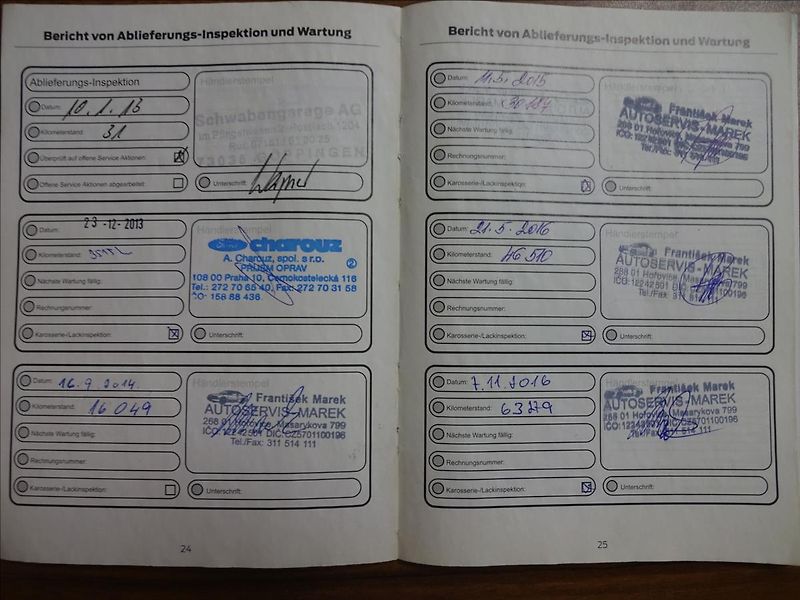 Bericht von Ablieferungs-Inspektion und Wartung
Ablieferungs-Inspektion
Datum: 10.1.13
Kilometerstand: 31
Überprüft auf offene Service Aktionen:
Offene Service Aktionen abgearbeitet:
Händlerstempel
Schwabengarage AG
73035 GÖPPINGEN
Unterschrift:
Datum: 23-12-2013
Kilometerstand:
Nächste Wartung fällig:
Rechnungsnummer:
Karosserie-/Lackinspektion:
Händlerstempel
charouz
A. Charouz, spol. s r.o.
PŘÍJEM OPRAV
2
108 00 Praha 10, Černokostelecká 116
Tel.: 272 70 65 40, Fax: 272 70 31 58
IČO: 158 88 436
Unterschrift:
Datum: 16.9.2014
Kilometerstand: 16 049
Nächste Wartung fällig:
Rechnungsnummer:
Karosserie-/Lackinspektion:
Händlerstempel
František Marek
AUTOSERVIS-MAREK
268 01 Hořovice, Masarykova 799
IČO: 12242501 DIČ: CZ5701100196
Tel./Fax: 311 514 111
Unterschrift:
24
Bericht von Ablieferungs-Inspektion und Wartung
Datum: 11.5.2015
Kilometerstand:
Nächste Wartung fällig:
Rechnungsnummer:
Karosserie-/Lackinspektion:
Händlerstempel
František Marek
AUTOSERVIS-MAREK
268 01 Hořovice, Masarykova 799
Unterschrift:
Datum: 21.5.2016
Kilometerstand: 46 510
Nächste Wartung fällig:
Rechnungsnummer:
Karosserie-/Lackinspektion:
Händlerstempel
František Marek
AUTOSERVIS-MAREK
268 01 Hořovice, Masarykova 799
Unterschrift:
Datum: 7.11.2016
Kilometerstand:
Nächste Wartung fällig:
Rechnungsnummer:
Karosserie-/Lackinspektion:
Händlerstempel
František Marek
AUTOSERVIS-MAREK
268 01 Hořovice, Masarykova 799
Unterschrift:
25